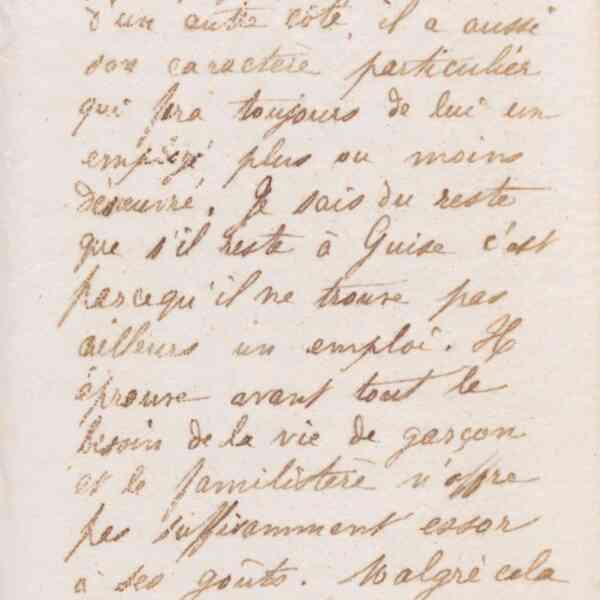 d'un autre côté, il a aussi
son caractère particulier
qui fera toujours de lui un
employé plus ou moins
désœuvré. Je sais du reste
que s'il reste à Guise c'est
parcequ'il ne trouve pas
ailleurs un emploi. Il
éprouve avant tout le
besoin de la vie de garçon
et le familistère n'offre
pas suffisamment essor
à ses goûts. Malgré cela